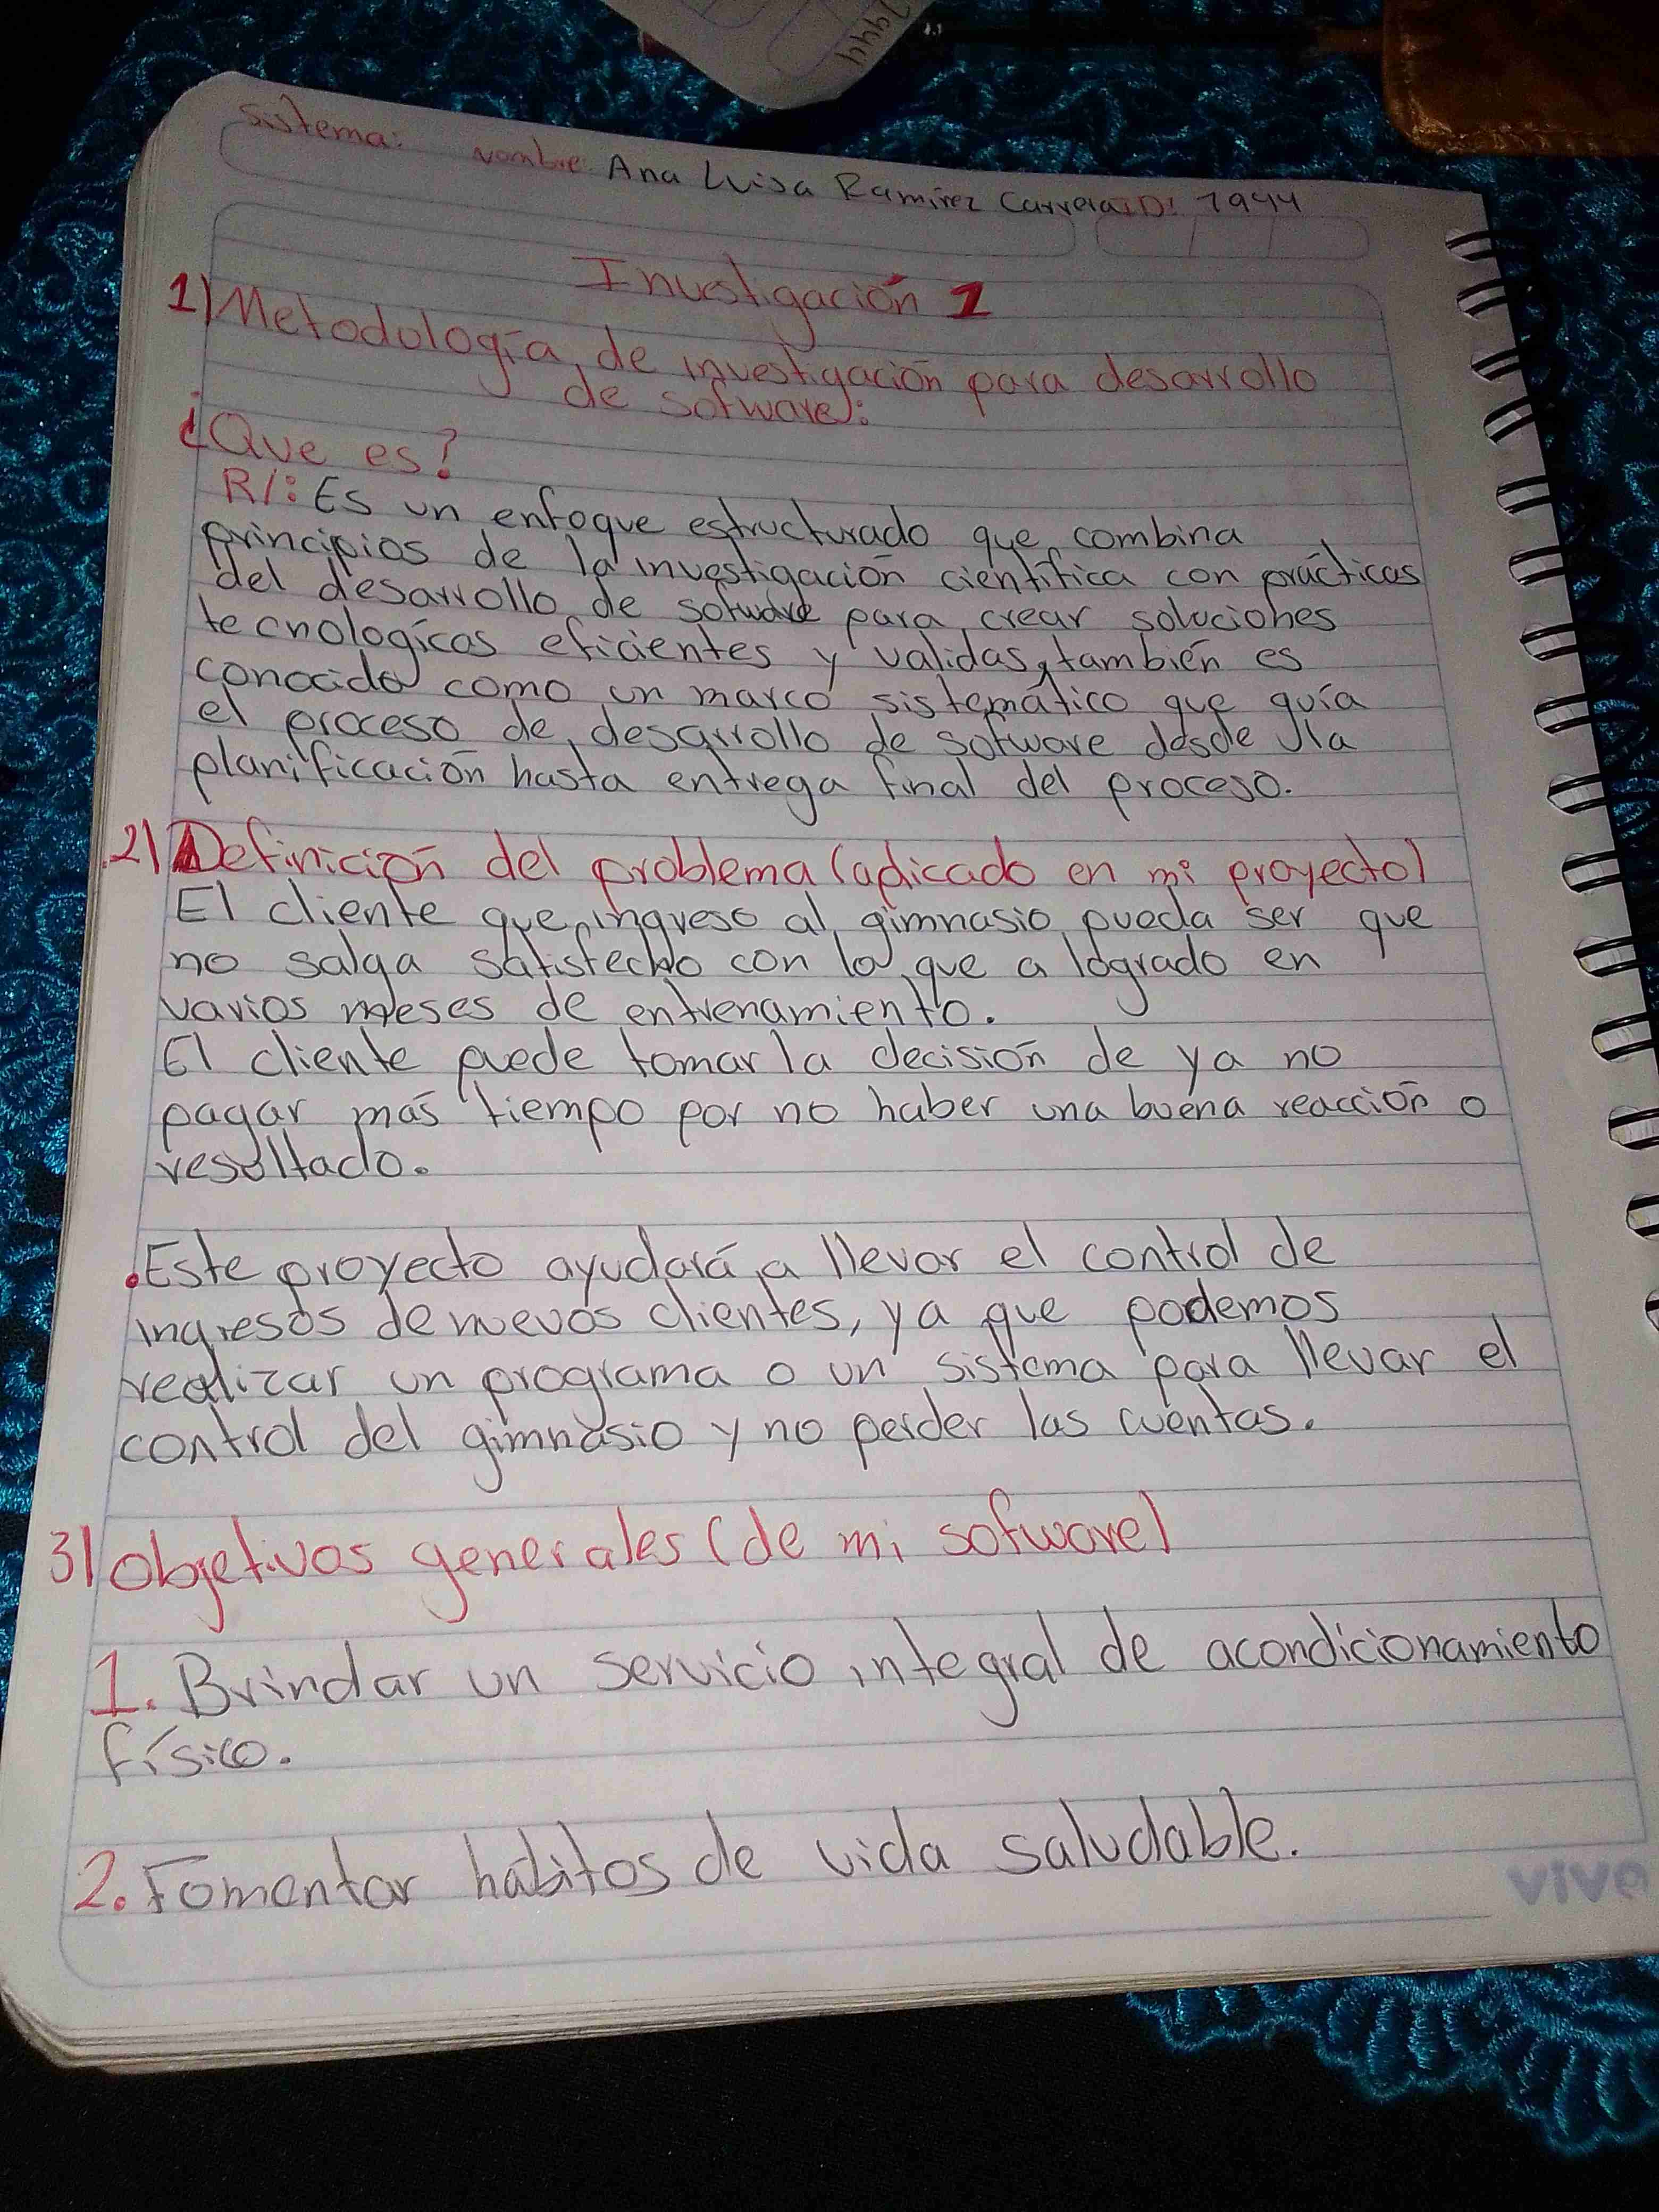 7944
Sistema: Nombre: Ana Luisa Ramirez Carrera ID: 7944
Investigación 1
1) Metodología de investigación para desarrollo
de sofware):
¿Que es?
R/: Es un enfoque estructurado que combina
principios de la investigación científica con prácticas
del desarrollo de sofware para crear soluciones
tecnologícas eficientes y validas, también es
conocido como un marco sistemático que guía
el proceso de desarrollo de sofware desde la
planificación hasta entrega final del proceso.
2) Definición del problema (aplicado en mi proyecto)
El cliente que ingreso al gimnasio pueda ser que
no salga satisfecho con lo que a logrado en
varios meses de entrenamiento.
El cliente puede tomar la decisión de ya no
pagar más tiempo por no haber una buena reacción o
resultado.
.Este proyecto ayudará a llevar el control de
ingresos de nuevos clientes, ya que podemos
realizar un programa o un sistema para llevar el
control del gimnasio y no perder las cuentas.
3) objetivos generales (de mi sofware)
1. Brindar un servicio integral de acondicionamiento
físico.
2. Fomentar hábitos de vida saludable.
vive